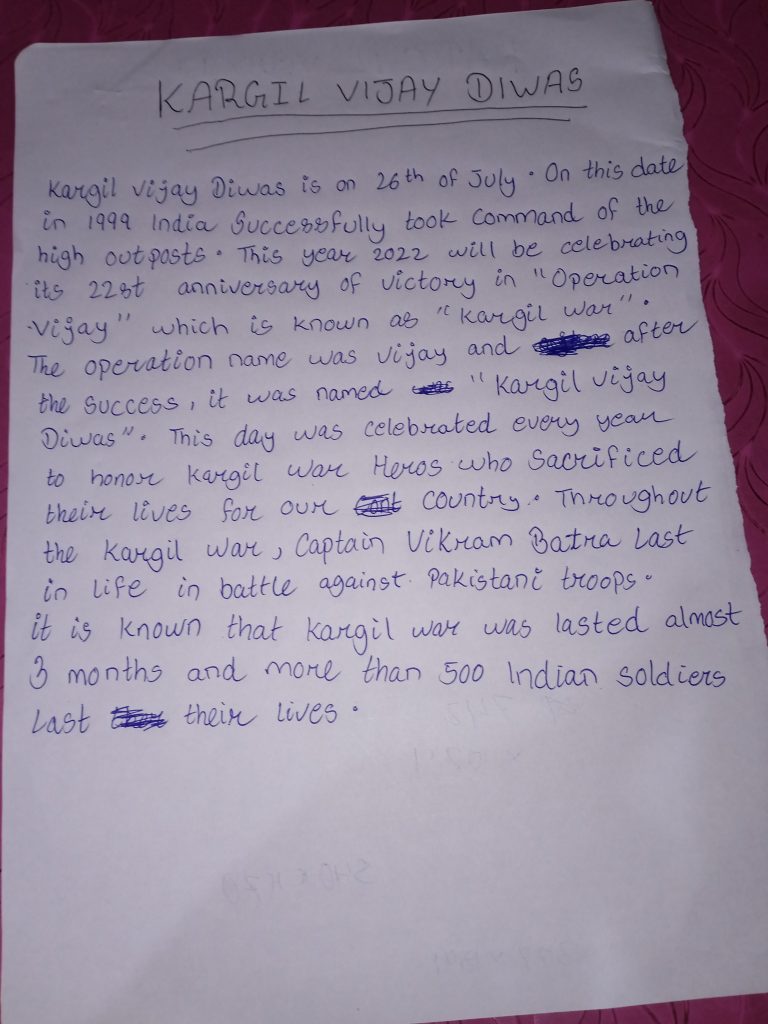 KARGIL VIJAY DIWAS
Kargil Vijay Diwas is on 26th of July. On this date
in 1999 India Successfully took command of the
high outposts. This year 2022 will be celebrating
its 22st anniversary of victory in "Operation
Vijay" which is known as "Kargil war".
The operation name was Vijay and after
the success, it was named "Kargil Vijay
Diwas". This day was celebrated every year
to honor Kargil war Heros who Sacrificed
their lives for our country. Throughout
the Kargil war, Captain Vikram Batra Last
in life in battle against Pakistani troops.
it is known that Kargil war was lasted almost
3 months and more than 500 Indian soldiers
Last their lives.